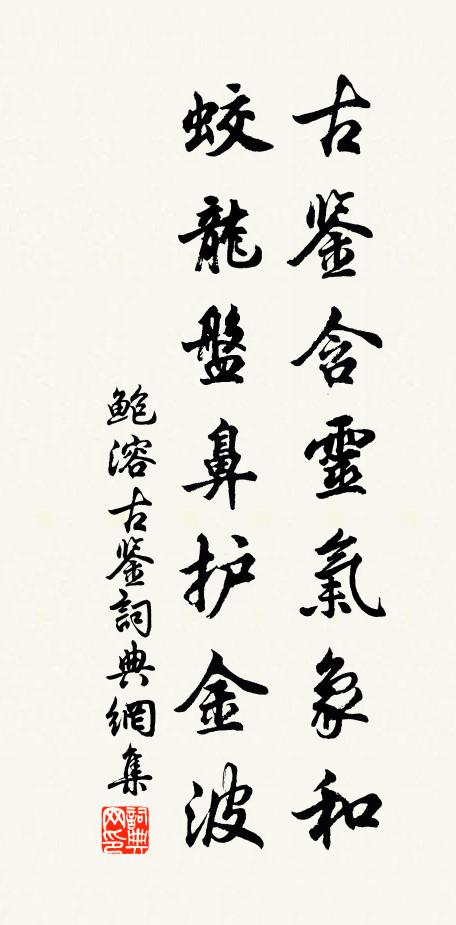 古鉴含靈氣象和
蛟龍盤鼻护金波
鮑溶古鉴詞典網集
詞典网印